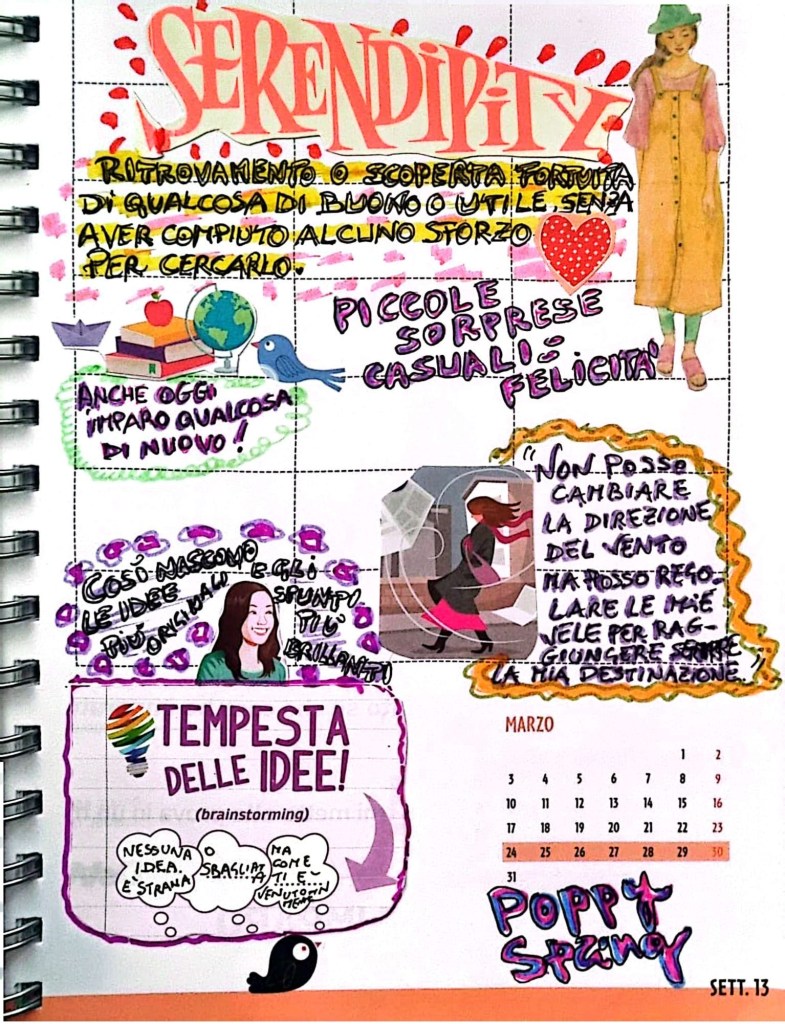 SERENDIPITY
RITROVAMENTO O SCOPERTA FORTUITA
DI QUALCOSA DI BUONO O UTILE SENZA
AVER COMPIUTO ALCUNO SFORZO
PER CERCARLO.
PICCOLE
SORPRESE
CASUALI =
FELICITA'
ANCHE OGGI
IMPARO QUALCOSA
DI NUOVO!
"NON POSSO
CAMBIARE
LA DIREZIONE
DEL VENTO
MA POSSO REGO-
LARE LE MIE
VELE PER RAG-
GIUNGERE SEMPRE
LA MIA DESTINAZIONE."
COSÌ NASCONO
LE IDEE
PIÙ ORIGINALI
E GLI
SPUNTI
PIÙ
BRILLANTI
TEMPESTA
DELLE IDEE!
(brainstorming)
NESSUNA
IDEA
E' STRANA
O
SBAGLIATA
MA
COME
TI E'
VENUTO IN
MENTE
MARZO
1 2
3 4 5 6 7 8 9
10 11 12 13 14 15 16
17 18 19 20 21 22 23
24 25 26 27 28 29 30
31
POPPY
SPRING
SETT. 13